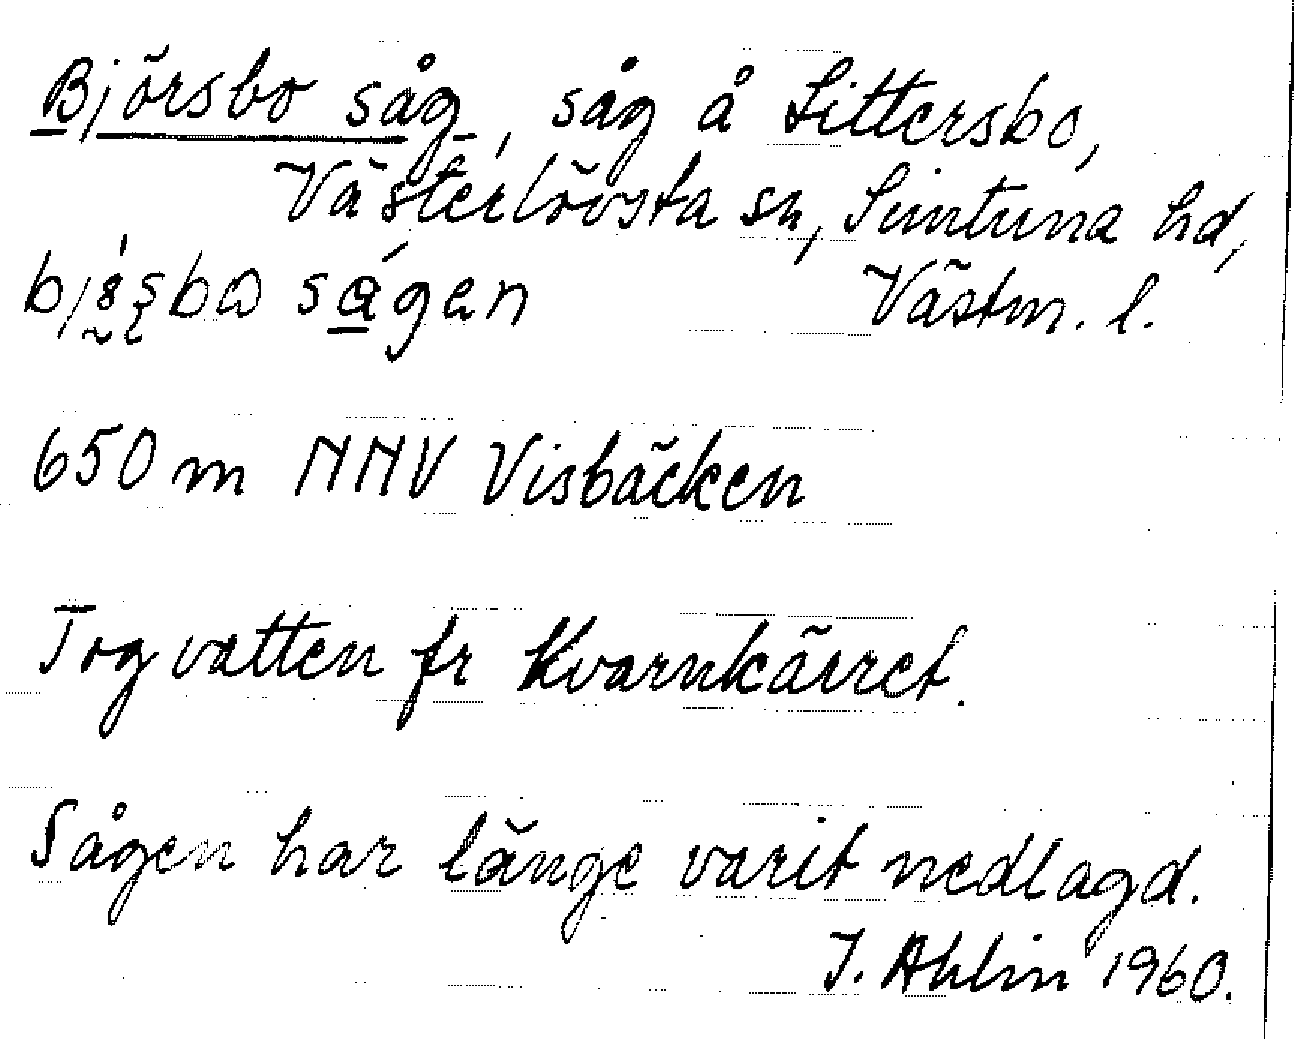 Björsbo såg, såg å Sittersbo,
Västerlövsta sn, Simtuna hd,
sågen Västm. l.
650 m NNV Visbäcken
Tog vatten fr Kvarnkärret.
Sågen har länge varit nedlagd.
J. Ahlin 1960.